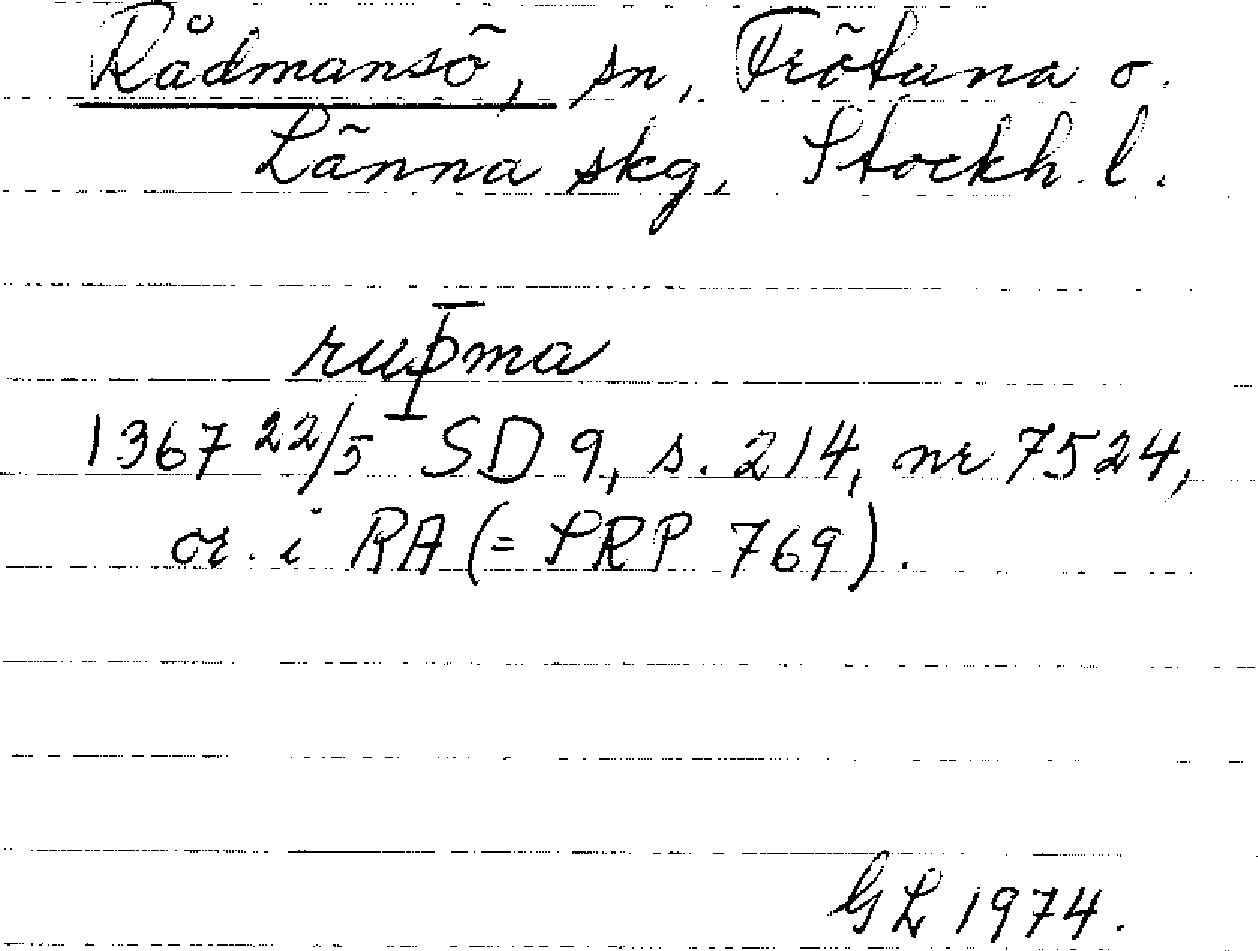 Rådmansö, sn, Frötuna o.
Länna skg, Stockh. l.
ruþma
1367 22/5 SD 9, s. 214, nr 7524,
or. i RA (= SRP 769).
GL 1974.